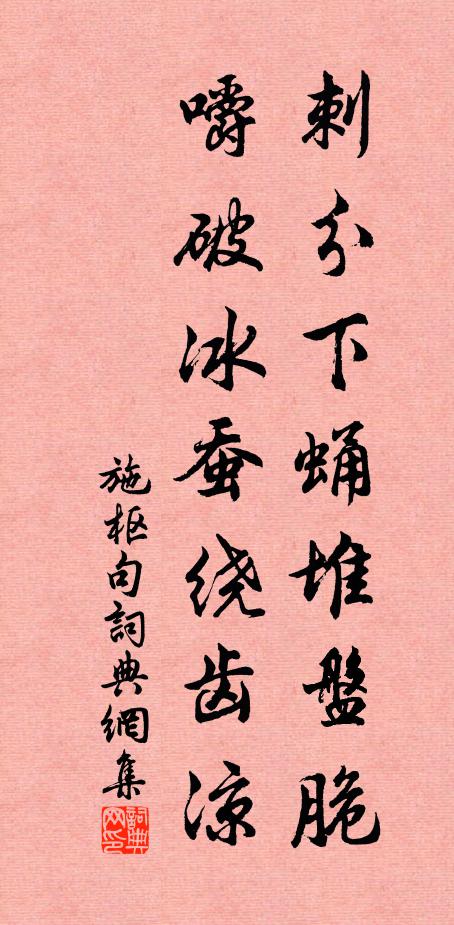 刺分下蛹堆盤脆
嚼破冰蚕绕齿凉
施枢句詞典網集
詞典网印